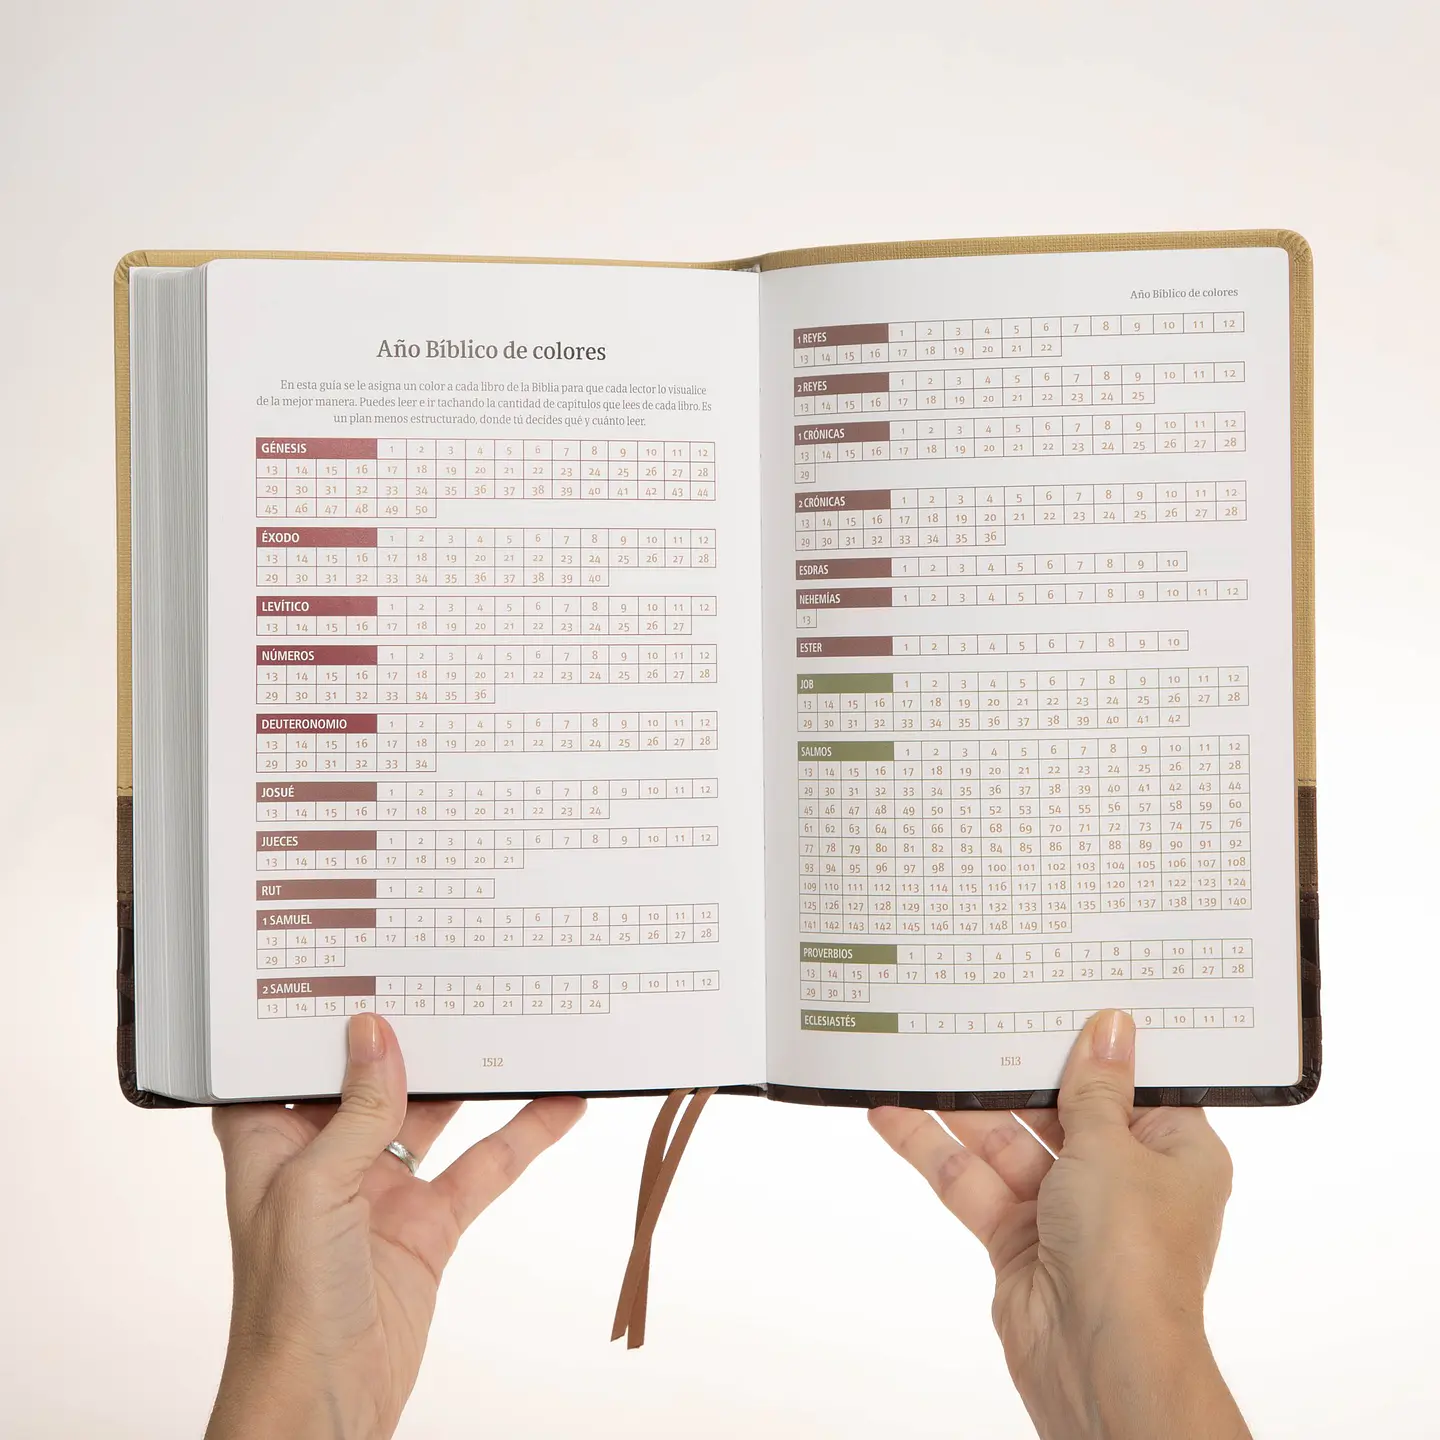 Año Bíblico de colores
En esta guía se le asigna un color a cada libro de la Biblia para que cada lector lo visualice
de la mejor manera. Puedes leer e ir tachando la cantidad de capítulos que lees de cada libro. Es
un plan menos estructurado, donde tú decides qué y cuánto leer.
GÉNESIS 1 2 3 4 5 6 7 8 9 10 11 12
13 14 15 16 17 18 19 20 21 22 23 24 25 26 27 28
29 30 31 32 33 34 35 36 37 38 39 40 41 42 43 44
45 46 47 48 49 50
ÉXODO 1 2 3 4 5 6 7 8 9 10 11 12
13 14 15 16 17 18 19 20 21 22 23 24 25 26 27 28
29 30 31 32 33 34 35 36 37 38 39 40
LEVÍTICO 1 2 3 4 5 6 7 8 9 10 11 12
13 14 15 16 17 18 19 20 21 22 23 24 25 26 27
NÚMEROS 1 2 3 4 5 6 7 8 9 10 11 12
13 14 15 16 17 18 19 20 21 22 23 24 25 26 27 28
29 30 31 32 33 34 35 36
DEUTERONOMIO 1 2 3 4 5 6 7 8 9 10 11 12
13 14 15 16 17 18 19 20 21 22 23 24 25 26 27 28
29 30 31 32 33 34
JOSUÉ 1 2 3 4 5 6 7 8 9 10 11 12
13 14 15 16 17 18 19 20 21 22 23 24
JUECES 1 2 3 4 5 6 7 8 9 10 11 12
13 14 15 16 17 18 19 20 21
RUT 1 2 3 4
1 SAMUEL 1 2 3 4 5 6 7 8 9 10 11 12
13 14 15 16 17 18 19 20 21 22 23 24 25 26 27 28
29 30 31
2 SAMUEL 1 2 3 4 5 6 7 8 9 10 11 12
13 14 15 16 17 18 19 20 21 22 23 24
1512
Año Bíblico de colores
1 REYES 1 2 3 4 5 6 7 8 9 10 11 12
13 14 15 16 17 18 19 20 21 22
2 REYES 1 2 3 4 5 6 7 8 9 10 11 12
13 14 15 16 17 18 19 20 21 22 23 24 25
1 CRÓNICAS 1 2 3 4 5 6 7 8 9 10 11 12
13 14 15 16 17 18 19 20 21 22 23 24 25 26 27 28
29
2 CRÓNICAS 1 2 3 4 5 6 7 8 9 10 11 12
13 14 15 16 17 18 19 20 21 22 23 24 25 26 27 28
29 30 31 32 33 34 35 36
ESDRAS 1 2 3 4 5 6 7 8 9 10
NEHEMÍAS 1 2 3 4 5 6 7 8 9 10 11 12
13
ESTER 1 2 3 4 5 6 7 8 9 10
JOB 1 2 3 4 5 6 7 8 9 10 11 12
13 14 15 16 17 18 19 20 21 22 23 24 25 26 27 28
29 30 31 32 33 34 35 36 37 38 39 40 41 42
SALMOS 1 2 3 4 5 6 7 8 9 10 11 12
13 14 15 16 17 18 19 20 21 22 23 24 25 26 27 28
29 30 31 32 33 34 35 36 37 38 39 40 41 42 43 44
45 46 47 48 49 50 51 52 53 54 55 56 57 58 59 60
61 62 63 64 65 66 67 68 69 70 71 72 73 74 75 76
77 78 79 80 81 82 83 84 85 86 87 88 89 90 91 92
93 94 95 96 97 98 99 100 101 102 103 104 105 106 107 108
109 110 111 112 113 114 115 116 117 118 119 120 121 122 123 124
125 126 127 128 129 130 131 132 133 134 135 136 137 138 139 140
141 142 143 142 145 146 147 148 149 150
PROVERBIOS 1 2 3 4 5 6 7 8 9 10 11 12
13 14 15 16 17 18 19 20 21 22 23 24 25 26 27 28
29 30 31
ECLESIASTÉS 1 2 3 4 5 6 9 10 11 12
1513